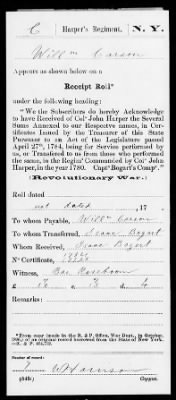 C Harper's Regiment, N. Y.
Willm Carson
Appears as shown below on a
Receipt Roll*
under the following heading:
"We the Subscribers do hereby Acknowledge
to have Received of Col° John Harper the Several
Sums Annexed to our Respective names, in Cer-
tificates Issued by the Treasurer of this State
Pursuant to an Act of the Legislature passed
April 27th, 1784, being for Service performed by
us, or Transferred to us from those who performed
the same, in the Regim' Commanded by Col° John
Harper, in the year 1780. Capt Bogart's Comp'."
(Revolutionary War.)
Roll dated
not dated, 17 .
To whom Payable, Willm Carson
To whom Transferred, Isaac Bogart
Whom Received, Isaac Bogart
N° Certificate,
Witness, Bar Roseboom
£
Remarks:
*From copy (made in the R. & P. Office, War Dept., in October,
of an original record borrowed from the State of New York.
(545c) Copyist.